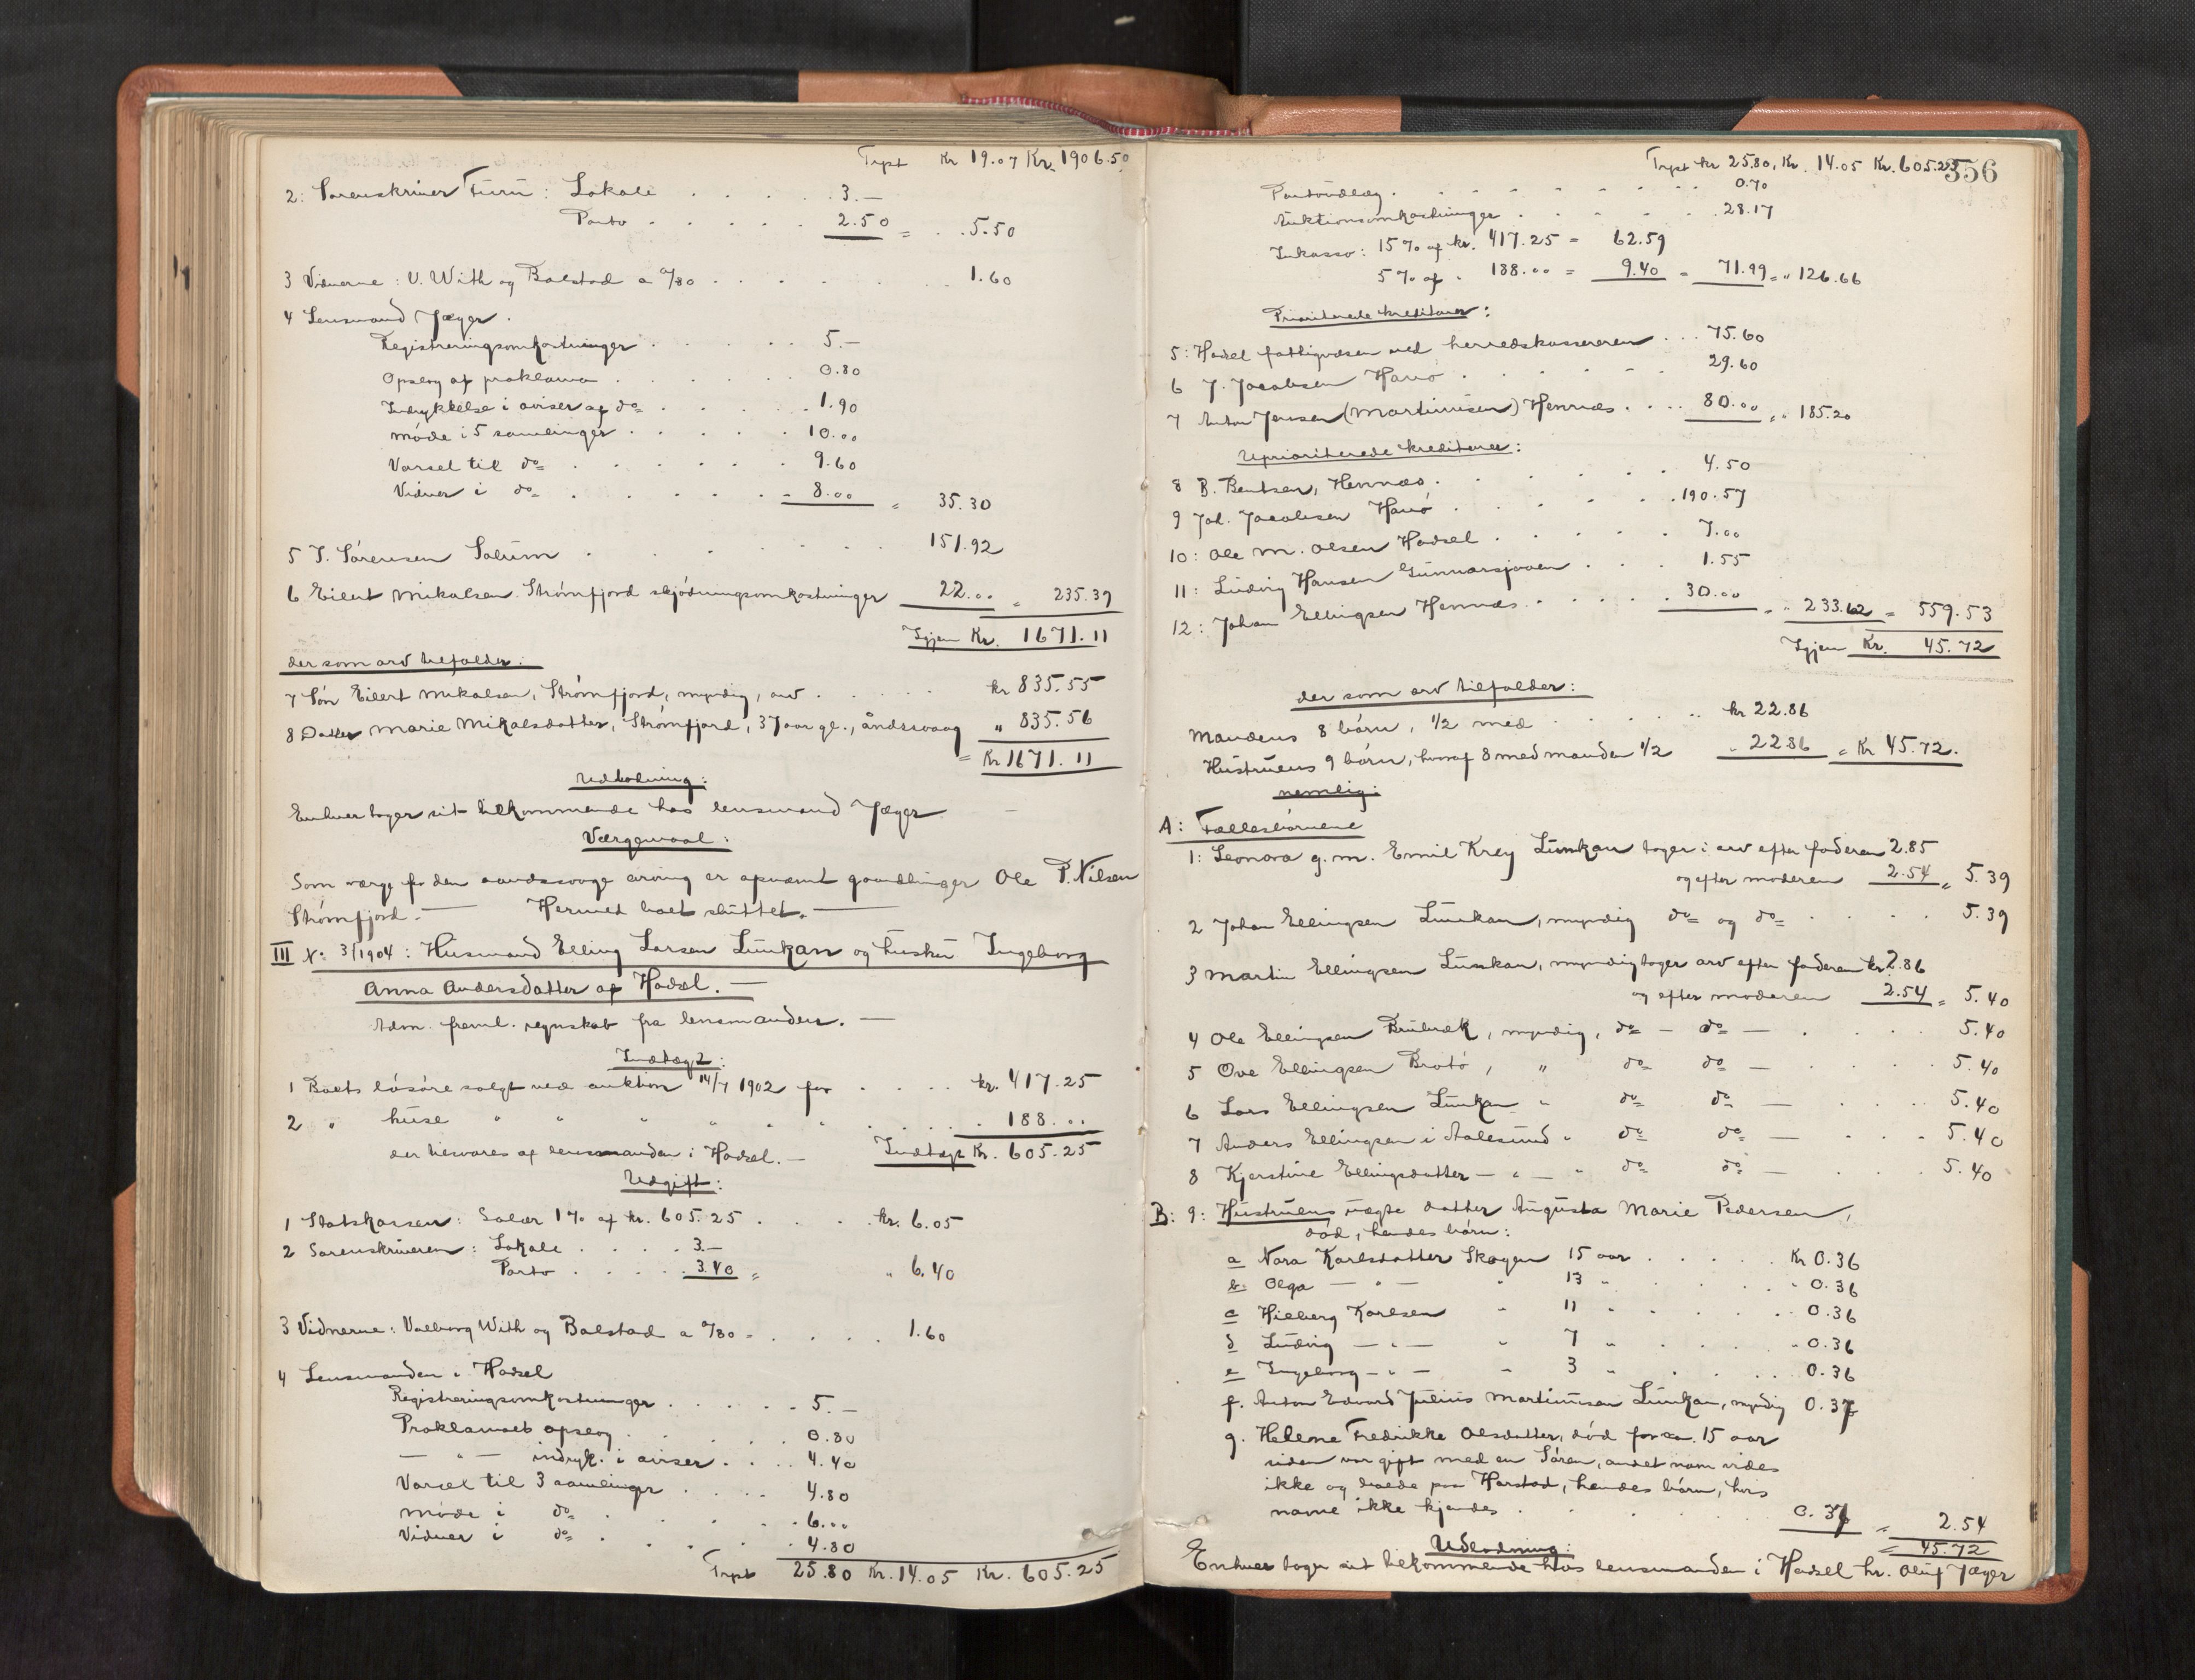 Trpt Kr 19.07 Kr. 1906.50
2: Sorenskriver Furu: Lokale . . . . . 3.—
Porto . . . . . 2.50 = . . 5.50
3 Vidnerne: V. With og Balstad a 0/80 . . . . . . 1.60
4 Lensmand Jæger.
Registreringsomkostninger . . . . . 5.—
Opslag af proklama . . . . . 0.80
Indrykkelse i aviser af do . . . . . 1.90
Møde i 5 samlinger . . . . . 10.00
Varsel til do . . . . . 9.60
Vidner i do . . . . . 8.00 = 35.30
5 I. Sørensen Solum . . . . . . 151.92
6 Eilert Mikalsen Strømfjord skjødningsomkostninger 22.00 = 235.39
Igjen Kr. 1671.11
der som arv tilfalder:
7 Søn Eilert Mikalsen, Strømfjord, myndig, arv . . . . kr 835.55
8 Datter Marie Mikalsdatter, Strømfjord, 37 aar gl., åndssvag " 835.56
= Kr 1671.11
Udlodning:
Enhver tager sit tilkommende hos lensmand Jæger —
Værgemaal:
Som værge for den aandssvage arving er opnævnt gaardbruger Ole P. Nilsen
Strømfjord. — Hermed boet sluttet. —
III No 3/1904: Husmand Elling Larsen Lunkan og hustru Ingeborg
Anna Andersdatter af Hadsel. —
Adm. freml. regnskab fra lensmanden. —
Indtægt:
1 Boets løsøre solgt ved auktion 14/7 1902 for . . . . kr. 417.25
2 " huse " " " " " " . . . . 188.00
der tilsvares af lensmanden i Hadsel. — Indtægt Kr. 605.25
Udgift:
1 Statskassen: Salær 1% af kr. 605.25 . . . . kr. 6.05
2 Sorenskriveren: Lokale . . . . 3.—
Porto . . . . . 3.40 = " 6.40
3 Vidnerne: Valborg With og Balstad a 0/80 = . . . . 1.60
4 Lensmanden i Hadsel
Registreringsomkostninger . . . . . 5.—
Proklamaets opslag . . . . . 0.80
— " — indryk. i aviser . . . . 4.40
Varsel til 3 samlinger . . . . 4.80
Møde i do . . . . . 6.00
Vidner i do . . . . . 4.80
Trpt 25.80 Kr. 14.05 Kr. 605.25
Trpt kr 25.80, Kr. 14.05 Kr. 605.25
356
Portoudlæg . . . . . . . 0.70
Auktionsomkostninger . . . . . 28.17
Inkasso: 15% af kr. 417.25 = 62.59
5% af " 188.00 = 9.40 = 71.99 = " 126.66
Prioriterede kreditorer:
5: Hadsel fattigvæsen ved herredskassereren . . . 75.60
6 J. Jacobsen Hanø . . . . . 29.60
7 Anton Jensen (Martinusen) Hennæs . . . . 80.00 = " 185.20
Uprioriterede kreditorer:
8 B. Bentsen, Hennæs . . . . . 4.50
9 Joh. Jacobsen Hanø . . . . . 190.57
10: Ole M. Olsen Hadsel . . . . . 7.00
11: Ludvig Hansen Gunnarsjøen . . . 1.55
12: Johan Ellingsen Hennæs . . . . . 30.00 = " 233.62 = 559.53
Igjen Kr. 45.72
der som arv tilfalder:
Mandens 8 børn, 1/2 med . . . . . kr 22.86
Hustruens 9 børn, hvoraf 8 med manden 1/2 " 22.86 = Kr 45.72.
nemlig:
A: Fællesbørnene
1: Leonora g. m. Emil Krey Lunkan tager i arv efter faderen 2.85
og efter moderen 2.54 = 5.39
2 Johan Ellingsen Lunkan, myndig do og do . . . . 5.39
3 Martin Ellingsen Lunkan, myndig tager arv efter faderen kr 2.86
og efter moderen 2.54 = 5.40
4 Ole Ellingsen Brubræk, myndig, do — do — . . . . 5.40
5 Ove Ellingsen Brotø, " do do — . . . . 5.40
6 Lars Ellingsen Lunkan " do do — . . . . 5.40
7 Anders Ellingsen i Aalesund " do do — . . . 5.40
8 Kjerstine Ellingsdatter — " — " do do — . . . 5.40
B: 9: Hustruens uægte datter Augusta Marie Pedersen,
død, hendes børn:
a Nora Karlsdatter Skogen 15 aar . . . . . Kr 0.36
b Olga — " — " 13 " . . . . . " 0.36
c Hilberg Karlsen " 11 " . . . . . 0.36
d Ludvig — " — " 7 " . . . . " 0.36
e Ingeborg — " — " 3 " . . . . 0.36
f. Anton Edvard Julius Martinusen Lunkan, myndig 0.37
g. Helene Fredrikke Olsdatter, død for ca. 15 aar
siden var gift med en Søren, andet navn vides
ikke og boede paa Harstad, hendes børn, hvis
navne ikke kjendes . . . . . 0.37 = 2.54
= 45.72
Udlodning:
Enhver tager sit tilkommende hos lensmanden i Hadsel hr. Oluf Jæger